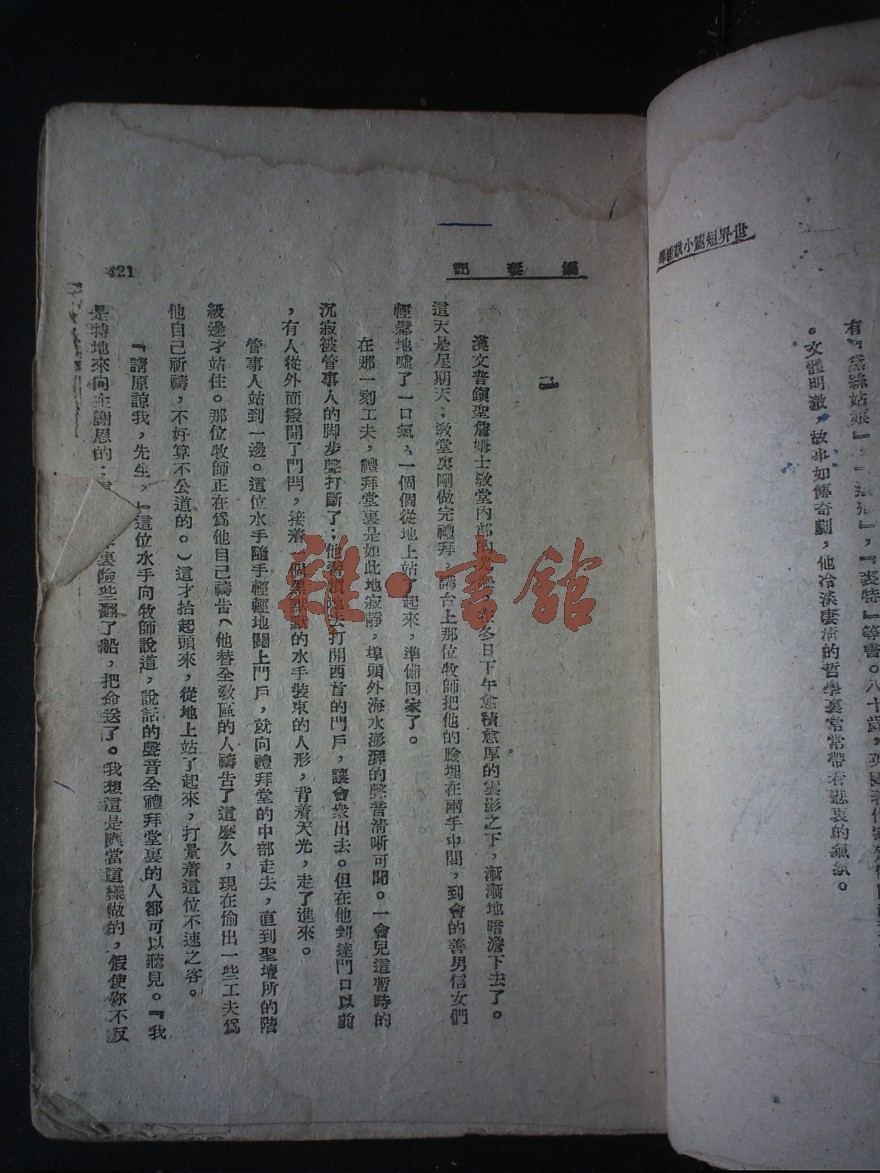 世界短篇小說精華
有『黛絲姑娘』，『還鄉』，『麥特』等書。八十歲，英國著作家
。文體明澈，故事如傳奇劇，他冷淡淒清的哲學裏常常帶着悲哀的氣氛。
娛妻記
421
一
漢文普鎮聖詹姆士敎堂內部的冬日下午愈積愈厚的雲影之下，漸漸地暗澹下去了。
這天是星期天；敎堂裏剛做完禮拜，講台上那位牧師把他的臉埋在兩手中間，到會的善男信女們
輕鬆地噓了一口氣，一個個從地上站了起來，準備回家了。
在那一刻工夫，禮拜堂裏是如此地寂靜，埠頭外海水澎湃的聲音清晰可聞。一會兒這暫時的
沉寂被管事人的脚步聲打斷了；他習慣地去打開西首的門戶，讓會衆出去。但在他到達門口以前
，有人從外面撥開了門閂，接着一個黑的水手裝束的人形，背着天光，走了進來。
管事人站到一邊。這位水手隨手輕輕地關上門戶，就向禮拜堂的中部走去，直到聖壇所的階
級邊才站住。那位牧師正在爲他自己禱告（他替全敎區的人禱告了這麼久，現在偷出一些工夫爲
他自己祈禱，不好算不公道的。）這才抬起頭來，從地上站了起來，打量着這位不速之客。
『請原諒我，先生，』這位水手向牧師說道，說話的聲音全禮拜堂裏的人都可以聽見。『我
是特地來向主謝恩的；裏險些翻了船，把命送了。我想這是應當這樣做的，假使你不反
雜·書館